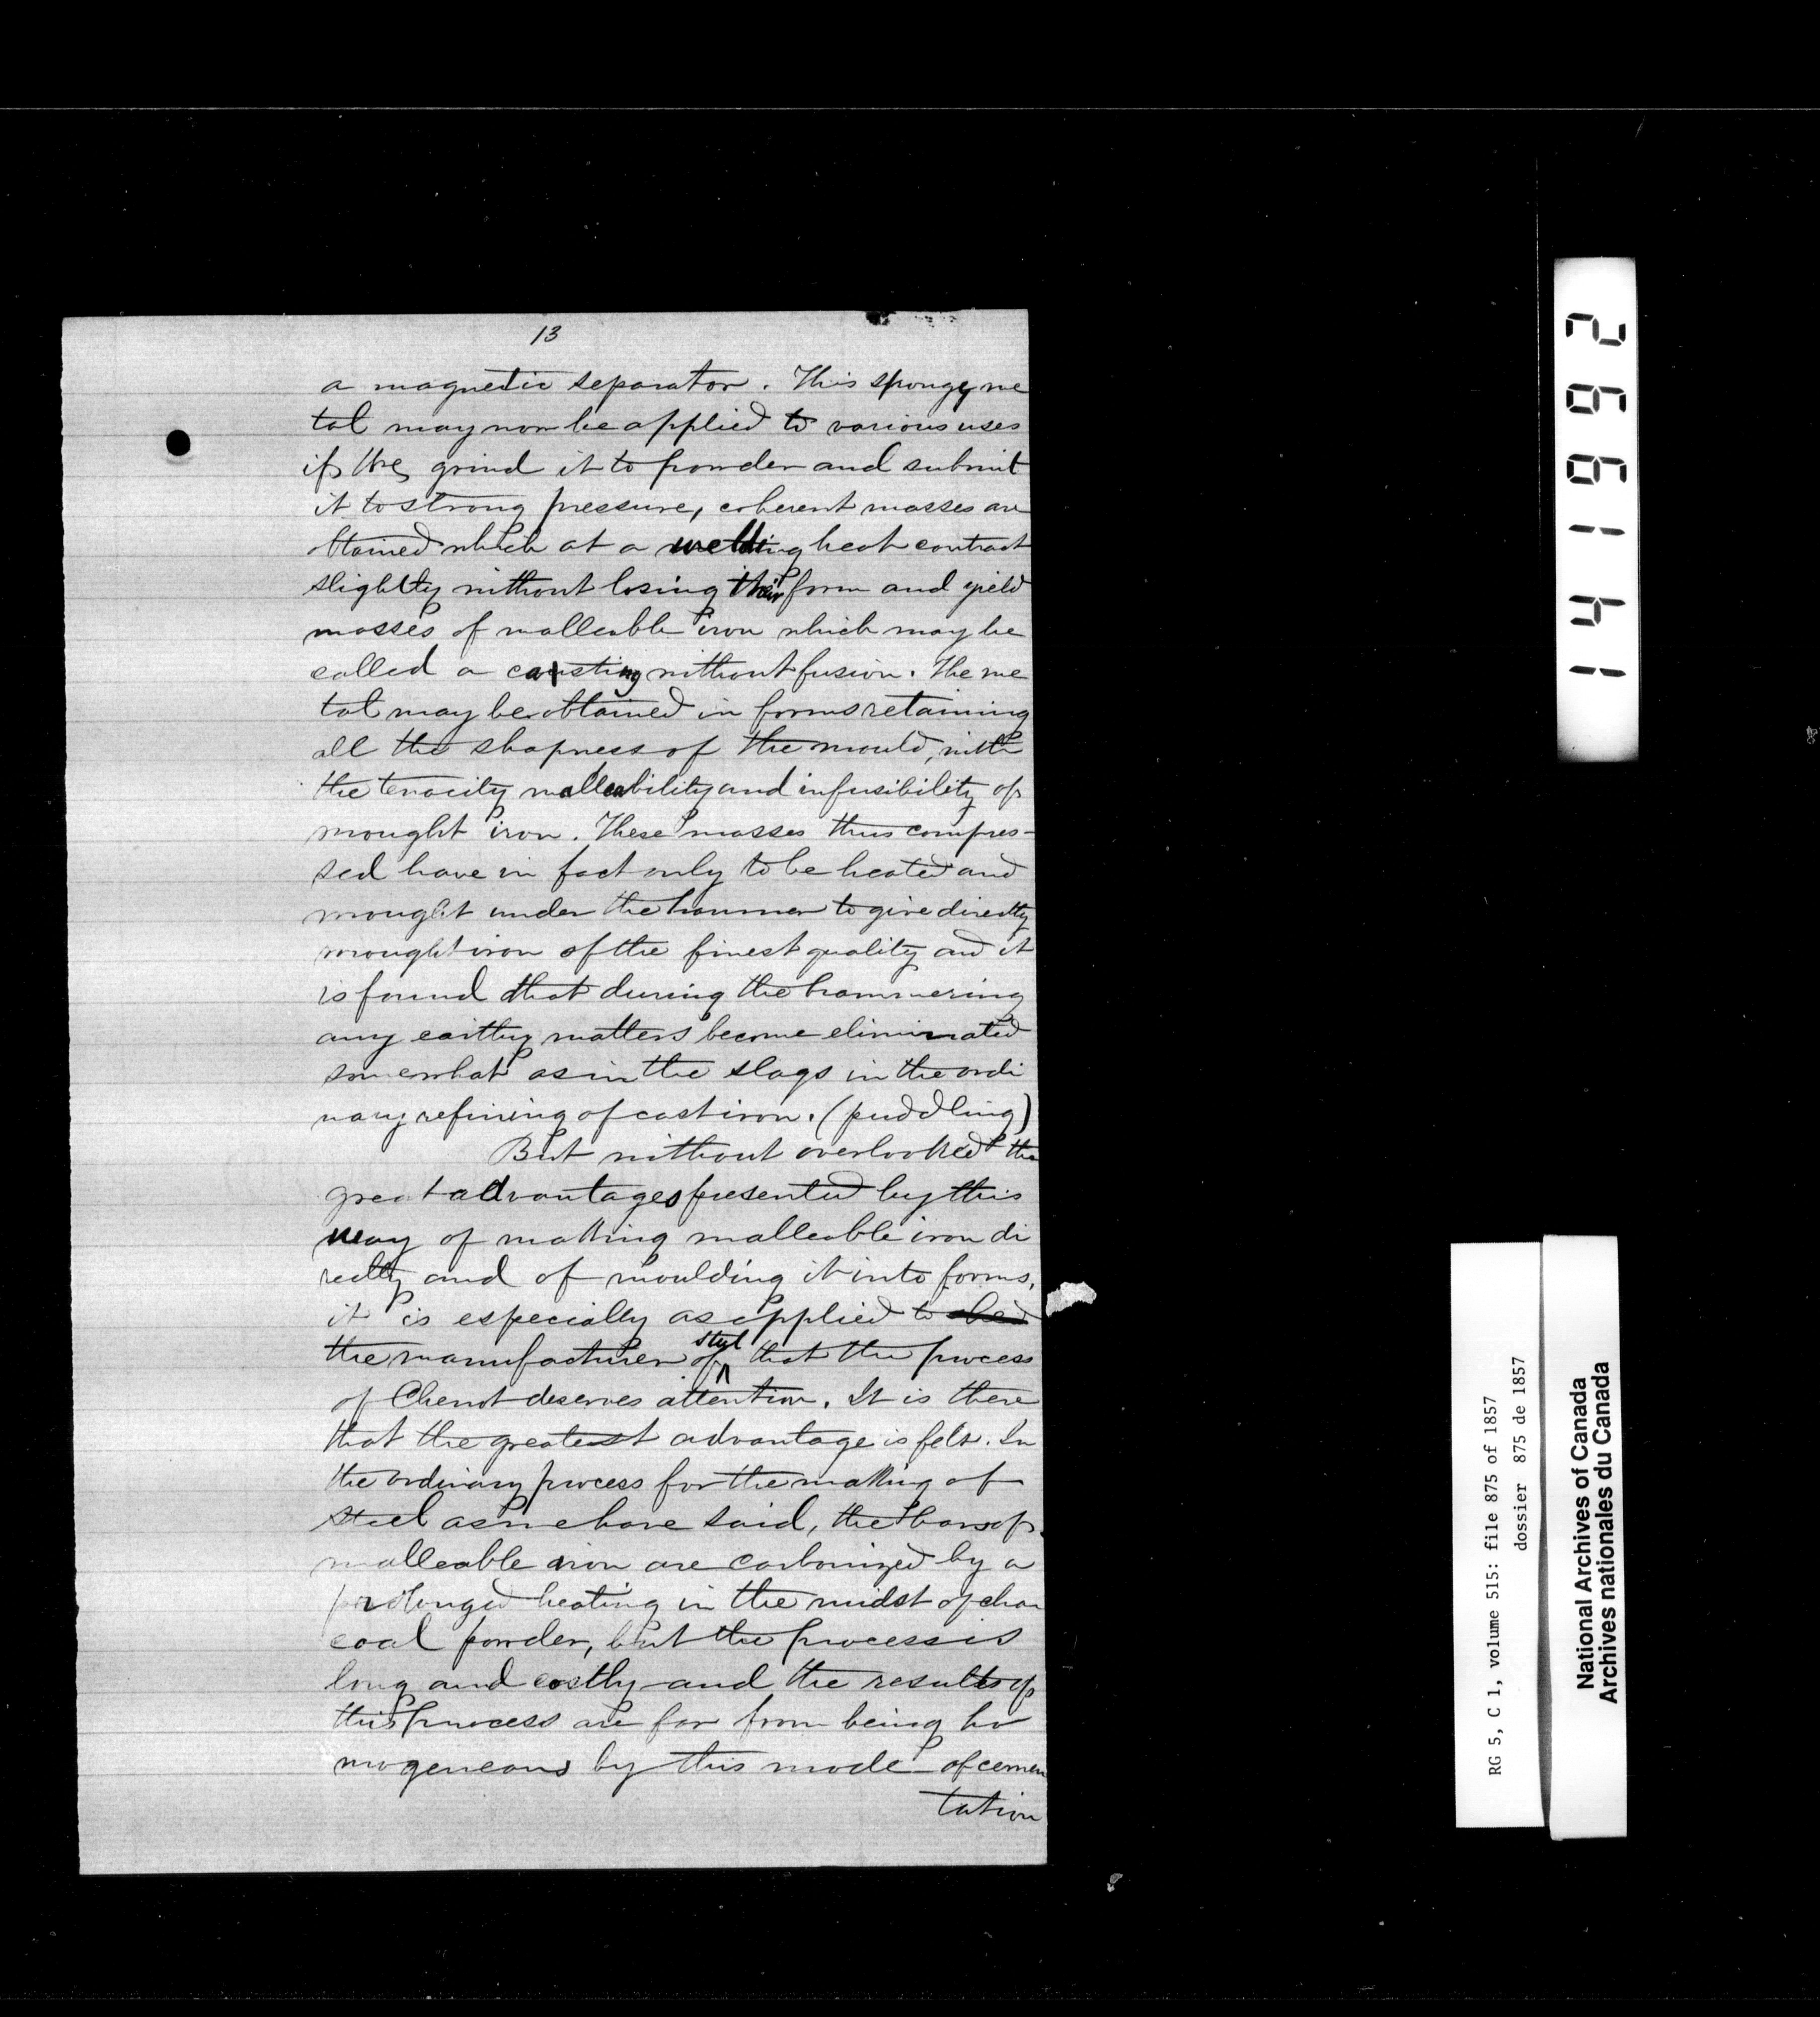 13
a magnetic separator. This spongy me
tal may now be applied to various uses
if we grind it to powder and submit
it to strong pressure, coherent masses are
obtained which at a welding heat contract
slightly without losing their form and yield
masses of malleable iron which may be
called a casting without fusion. The me
tal may be obtained in forms retaining
all the shapness of the mould, with
the tenacity malleability and infusibility of
wrought iron. These masses thus compres-
sed have in fact only to be heated and
wrought under the hammer to give directly
wrought iron of the finest quality and it
is found that during the hammering
any earthy matters become eliminated
somewhat as in the slags in the ordi
nary refining of cast iron. (puddling)
But without overlooked the
great advantages presented by this
way of making malleable iron di
rectly and of moulding it into forms,
it is especially as applied to
the manufacturer of steel that the process
of Chenot deserves attention. It is there
that the greatest advantage is felt. In
the ordinary process for the making of
steel as we have said, the bars of
malleable iron are carbonized by a
prolonged heating in the midst of char
coal powder, but the process is
long and costly and the results of
this process are far from being ho
mogeneous by this mode of cemen
tation
141992
RG 5, C 1, volume 515: file 875 of 1857
dossier 875 de 1857
National Archives of Canada
Archives nationales du Canada